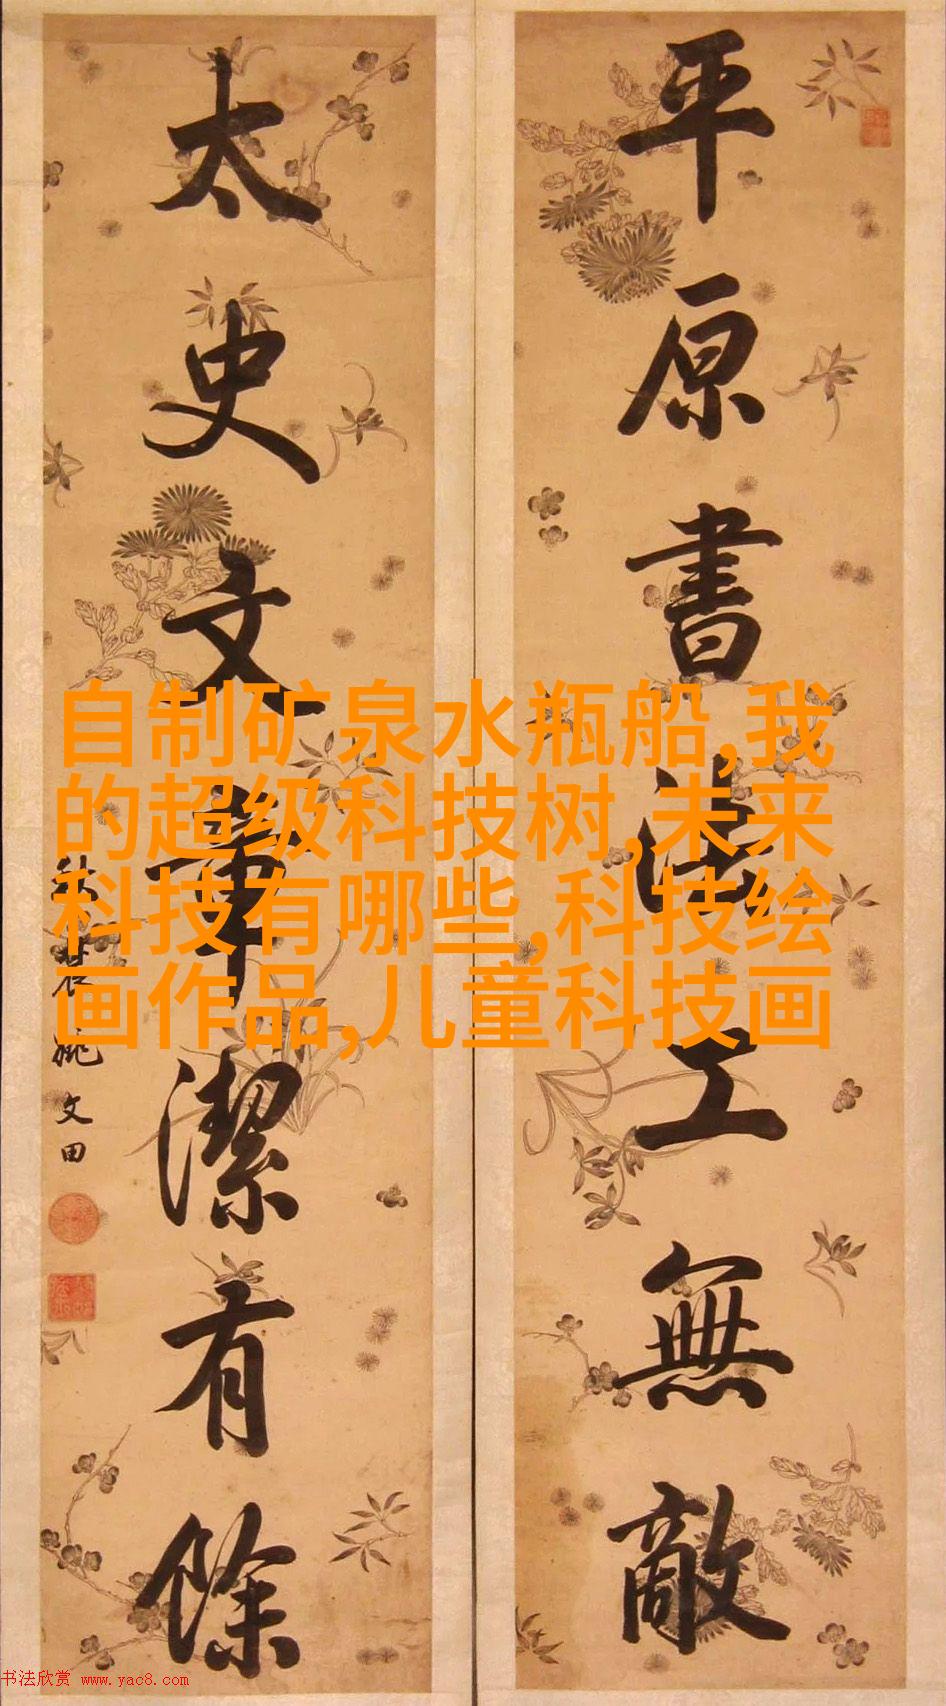 平原書法工無敵
太史文章潔有餘
秋農姚文田
自制矿泉水瓶船,我
的超级科技树,未来
科技有哪些,科技绘
画作品,儿童科技画
书法欣赏 www.yac8.com